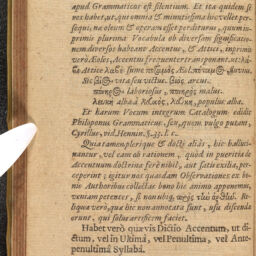 apud Grammaticos est silentium. Et ita quidem si
vos habet, ut, qui omnia & minutissima hic vellet per-
sequi, næ oleum & operam esset perditurus, quum in-
primis plurima Vocabula ob diversam significatio-
nem diversos habeant Accentus, & Attici, inprimis
verò Æoles, Accentus frequenter transponant. ut
Attice λαβὲ sume
vita seu victus. βιός arcus.
πόνηρος laboriosus, πονηρὸς malus.
λευκὴ alba à populus alba.
Et harum Vocum integrum Catalogum edidit
Philoponus Grammaticus. seu, quem vulgo putant,
Cyrillus, vid. Hennin. §. 35. l. c.
Quia tamen plerique & docti aliàs, hic halluci-
nantur, vel eam ob rationem, quòd in pueritia de
Accentuum doctrina ferè nihil, aut satis exilia, per-
ceperint; igitur nos quasdam Observationes ex bo-
nis Authoribus collectas bono hic animo apponemus,
veniam petentes, si non ubiq; Re-
liqua verò, quæ hic non annotata sunt, usu discenda
erunt, qui solus artificem faciet.
Habet verò quævis Dictio Accentum, ut di-
ctum, vel in Ultimâ, vel Penultima, vel Ante-
penultimâ Syllabâ.